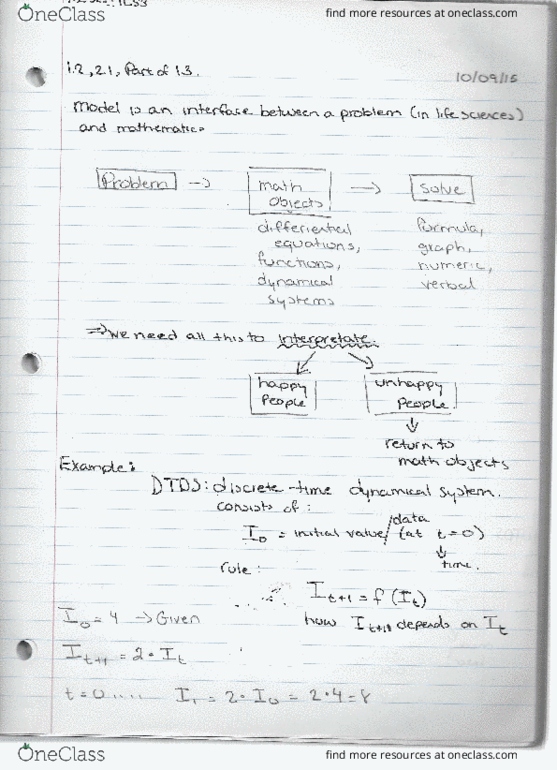 OneClass
find more resources at oneclass.com
1.2, 2.1, Part of 1.3.
10/09/15
Model is an interface between a problem (in life sciences)
and mathematics
Problem → math Objects → Solve
differiential equations, functions, dynamical systems
formula, graph, numeric, verbal
⇒ we need all this to interpretate.
happy People
unhappy People
return to
math objects
Example:
DTDS: discrete-time dynamical system.
consists of:
I₀ = initial value/data (at t=0)
time.
rule:
Iₜ₊₁ = f(Iₜ)
I₀ = 4 → Given
how Iₜ₊₁ depends on Iₜ
Iₜ₊₁ = 2·Iₜ
t = 0..... I₁ = 2·I₀ = 2·4 = 8
OneClass
find more resources at oneclass.com